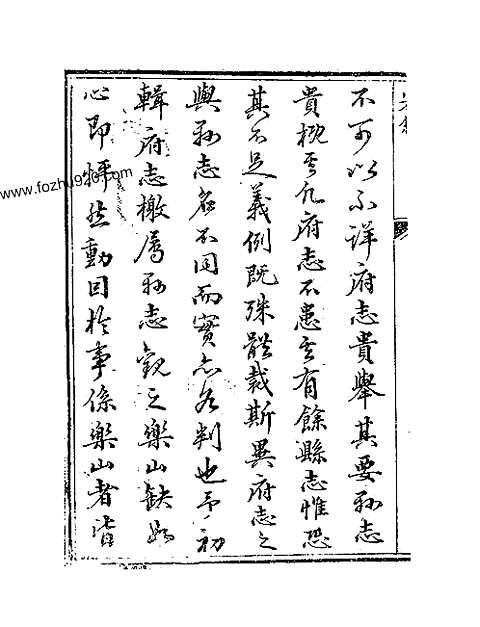 不可以不詳府志貴舉其要縣志
貴概其凡府志不患其有餘縣志惟恐
其不足義例既殊體裁斯異府志之
與縣志名不同而實亦各判也予初
輯府志檄属縣志觀之樂山缺如
心即怦然動因於事係樂山者皆
www.fozhu920.com